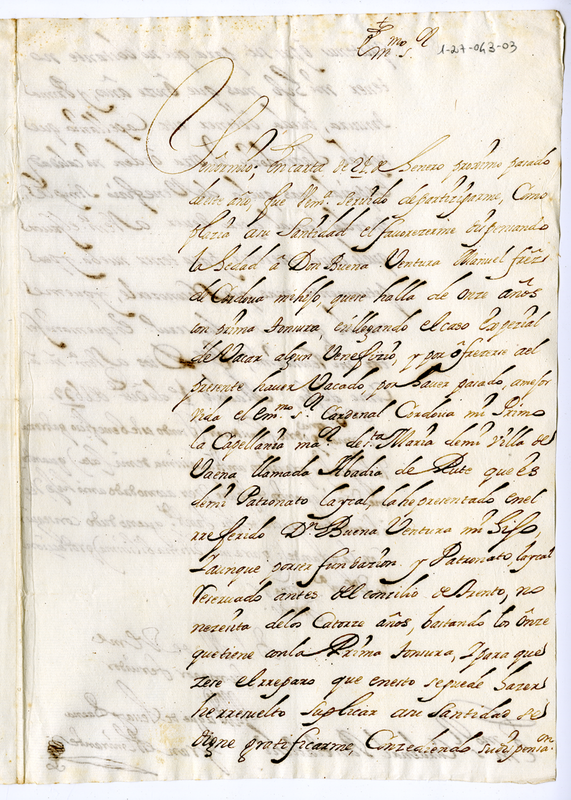 Emmo. S.or
1-27-063-03
Haviendo, En carta de 24 de Henero proximo pasado
deste año, fue V.Emª. servido de partiziparme, Como
plazia a su Santidad el favorezerme dispensando
la hedad â Don Buena Ventura Manuel frrz
de Cordova mi hijo, que se halla de onze años
con prima tonsura, en llegando el caso Espezial
de Vacar algun Venefizio, y por ôfrezerse ael
presente haver Vacado, por haver pasado, a mejor
vida el emmo. s.or Cardenal Cordova mi Primo
la Capellania ma.or de s.ta Maria de mi Villa de
Vaena llamada Abadia de Rute que ês
de mi Patronato laycal, la he presentado en el
rreferido D.n Buena Ventura mi hijo
Y aunque por su fundazion, y Patronato, laycal
reservado antes del conzilio de Trento, no
nezesita de los Catorze años, bastando los ônze
que tiene con la Prima tonsura, Y para que
zese el rreparo que en esto se puede hazer
he rresuelto suplicar a su Santidad se
digne gratificarme, Conzediendo su dispensa.on